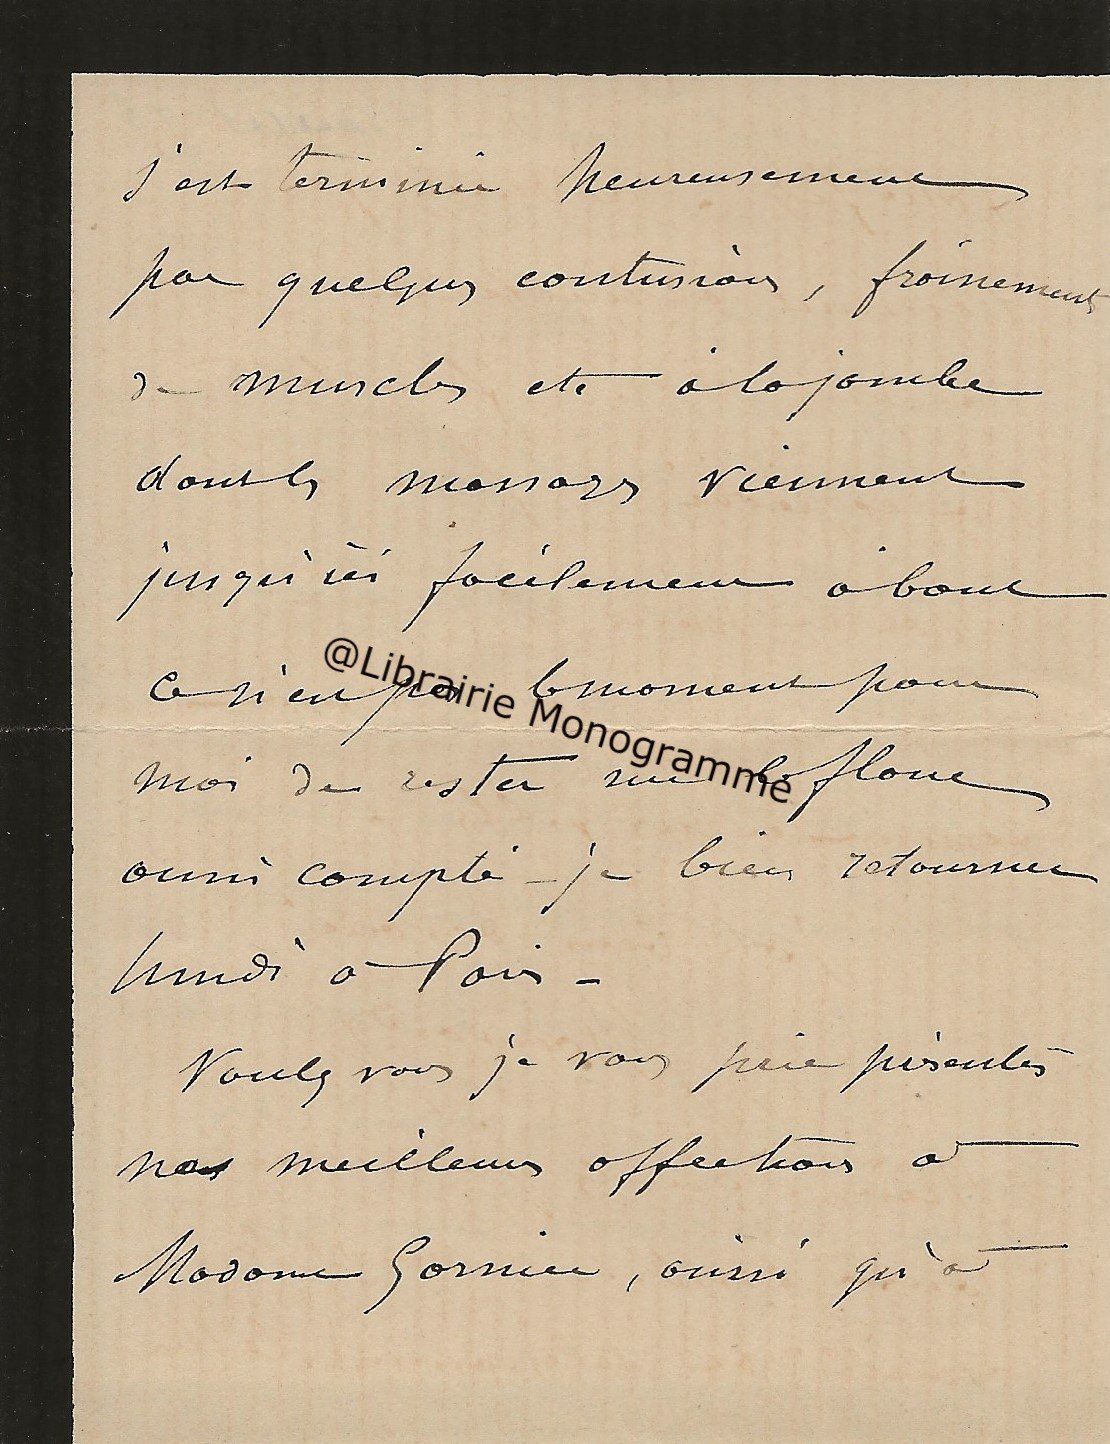 s'est terminée heureusement
par quelques contusions, froissements
de muscles etc à la jambe
dont les massages viennent
jusqu'ici facilement à bout
ce n'est pas le moment pour
@Librairie Monogramme
moi de rester sur le flanc
aussi compté-je bien retourner
lundi à Paris -
Voulez vous je vous prie présenter
nos meilleures affections à
Madame Garnier, ainsi qu'à